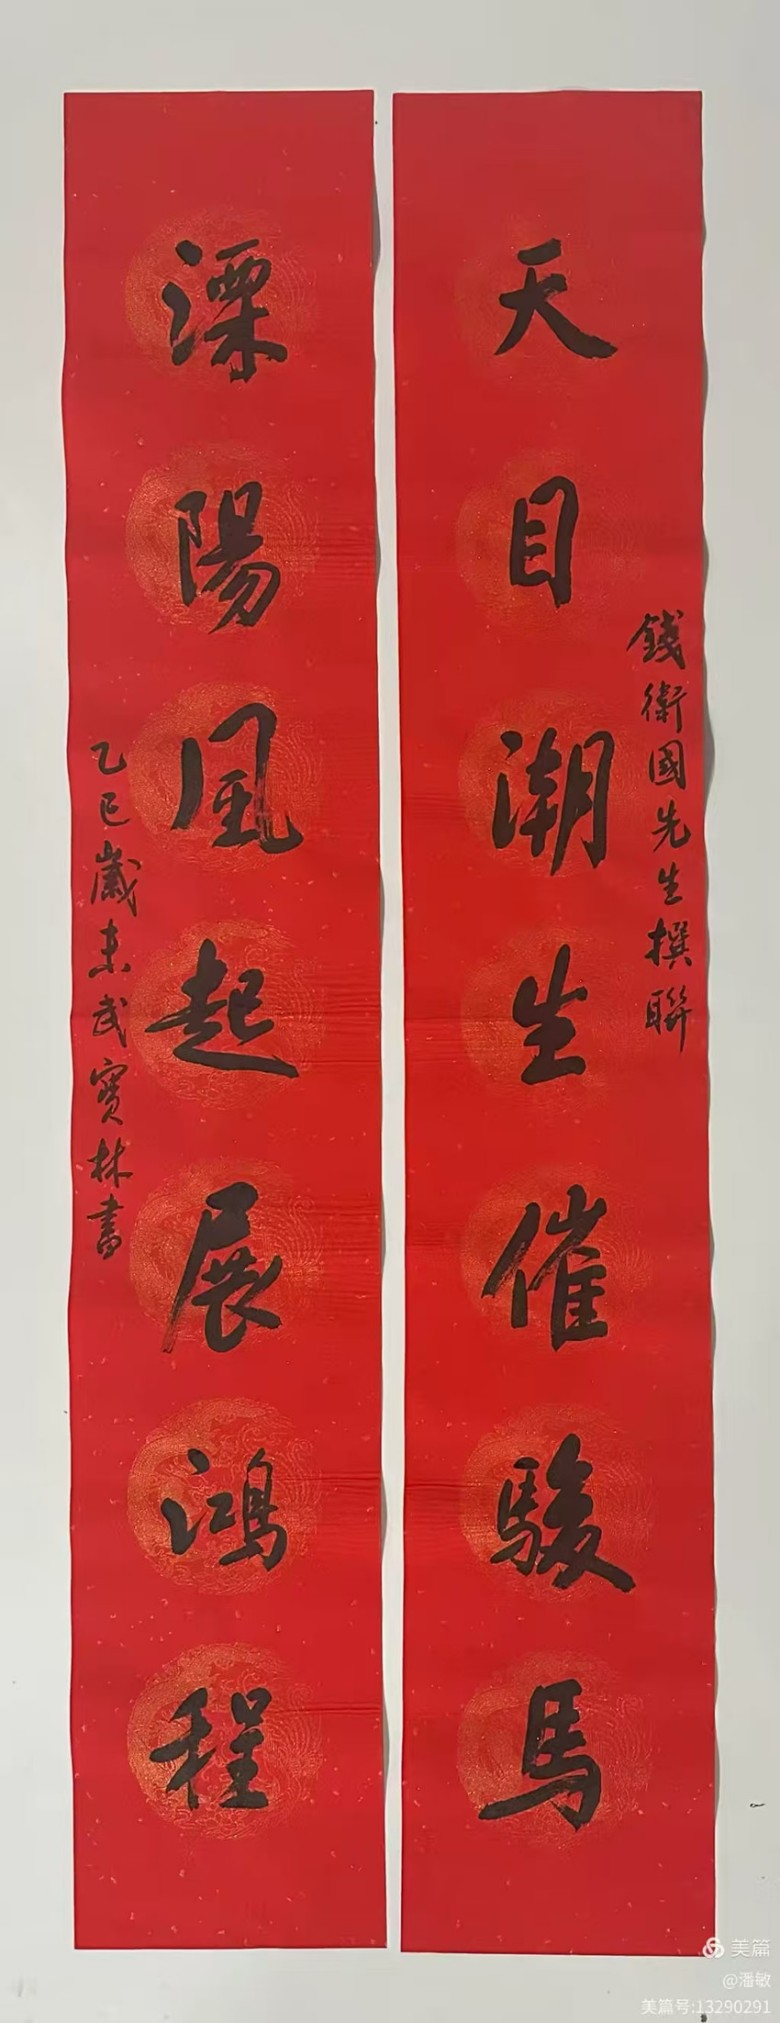 錢衛國先生撰聯
天目潮生催駿馬
溧陽風起展鴻程
乙巳歲末武寶林書
美篇
@潘敏
美篇号:13290291